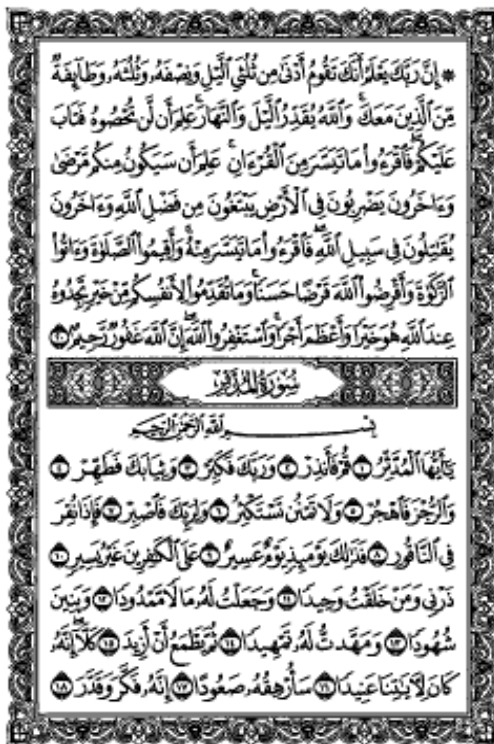 * إِنَّ رَبَّكَ يَعْلَمُ أَنَّكَ تَقُومُ أَدْنَىٰ مِن ثُلُثَيِ ٱلَّيْلِ وَنِصْفَهُۥ وَثُلُثَهُۥ وَطَآئِفَةٌ
مِّنَ ٱلَّذِينَ مَعَكَۚ وَٱللَّهُ يُقَدِّرُ ٱلَّيْلَ وَٱلنَّهَارَۚ عَلِمَ أَن لَّن تُحْصُوهُ فَتَابَ
عَلَيْكُمْۖ فَٱقْرَءُوا۟ مَا تَيَسَّرَ مِنَ ٱلْقُرْءَانِۚ عَلِمَ أَن سَيَكُونُ مِنكُم مَّرْضَىٰ
وَءَاخَرُونَ يَضْرِبُونَ فِى ٱلْأَرْضِ يَبْتَغُونَ مِن فَضْلِ ٱللَّهِ وَءَاخَرُونَ
يُقَٰتِلُونَ فِى سَبِيلِ ٱللَّهِۖ فَٱقْرَءُوا۟ مَا تَيَسَّرَ مِنْهُۚ وَأَقِيمُوا۟ ٱلصَّلَوٰةَ وَءَاتُوا۟
ٱلزَّكَوٰةَ وَأَقْرِضُوا۟ ٱللَّهَ قَرْضًا حَسَنًاۚ وَمَا تُقَدِّمُوا۟ لِأَنفُسِكُم مِّنْ خَيْرٍ تَجِدُوهُ
عِندَ ٱللَّهِ هُوَ خَيْرًا وَأَعْظَمَ أَجْرًاۚ وَٱسْتَغْفِرُوا۟ ٱللَّهَۖ إِنَّ ٱللَّهَ غَفُورٌ رَّحِيمٌۢ ٢٠
سُورَةُ المُدَّثِّر
بِسْمِ ٱللَّهِ ٱلرَّحْمَٰنِ ٱلرَّحِيمِ
يَٰٓأَيُّهَا ٱلْمُدَّثِّرُ ١ قُمْ فَأَنذِرْ ٢ وَرَبَّكَ فَكَبِّرْ ٣ وَثِيَابَكَ فَطَهِّرْ ٤
وَٱلرُّجْزَ فَٱهْجُرْ ٥ وَلَا تَمْنُن تَسْتَكْثِرُ ٦ وَلِرَبِّكَ فَٱصْبِرْ ٧ فَإِذَا نُقِرَ
فِى ٱلنَّاقُورِ ٨ فَذَٰلِكَ يَوْمَئِذٍ يَوْمٌ عَسِيرٌ ٩ عَلَى ٱلْكَٰفِرِينَ غَيْرُ يَسِيرٍ ١٠
ذَرْنِى وَمَنْ خَلَقْتُ وَحِيدًا ١١ وَجَعَلْتُ لَهُۥ مَالًا مَّمْدُودًا ١٢ وَبَنِينَ
شُهُودًا ١٣ وَمَهَّدتُّ لَهُۥ تَمْهِيدًا ١٤ ثُمَّ يَطْمَعُ أَنْ أَزِيدَ ١٥ كَلَّآۖ إِنَّهُۥ
كَانَ لِءَايَٰتِنَا عَنِيدًا ١٦ سَأُرْهِقُهُۥ صَعُودًا ١٧ إِنَّهُۥ فَكَّرَ وَقَدَّرَ ١٨